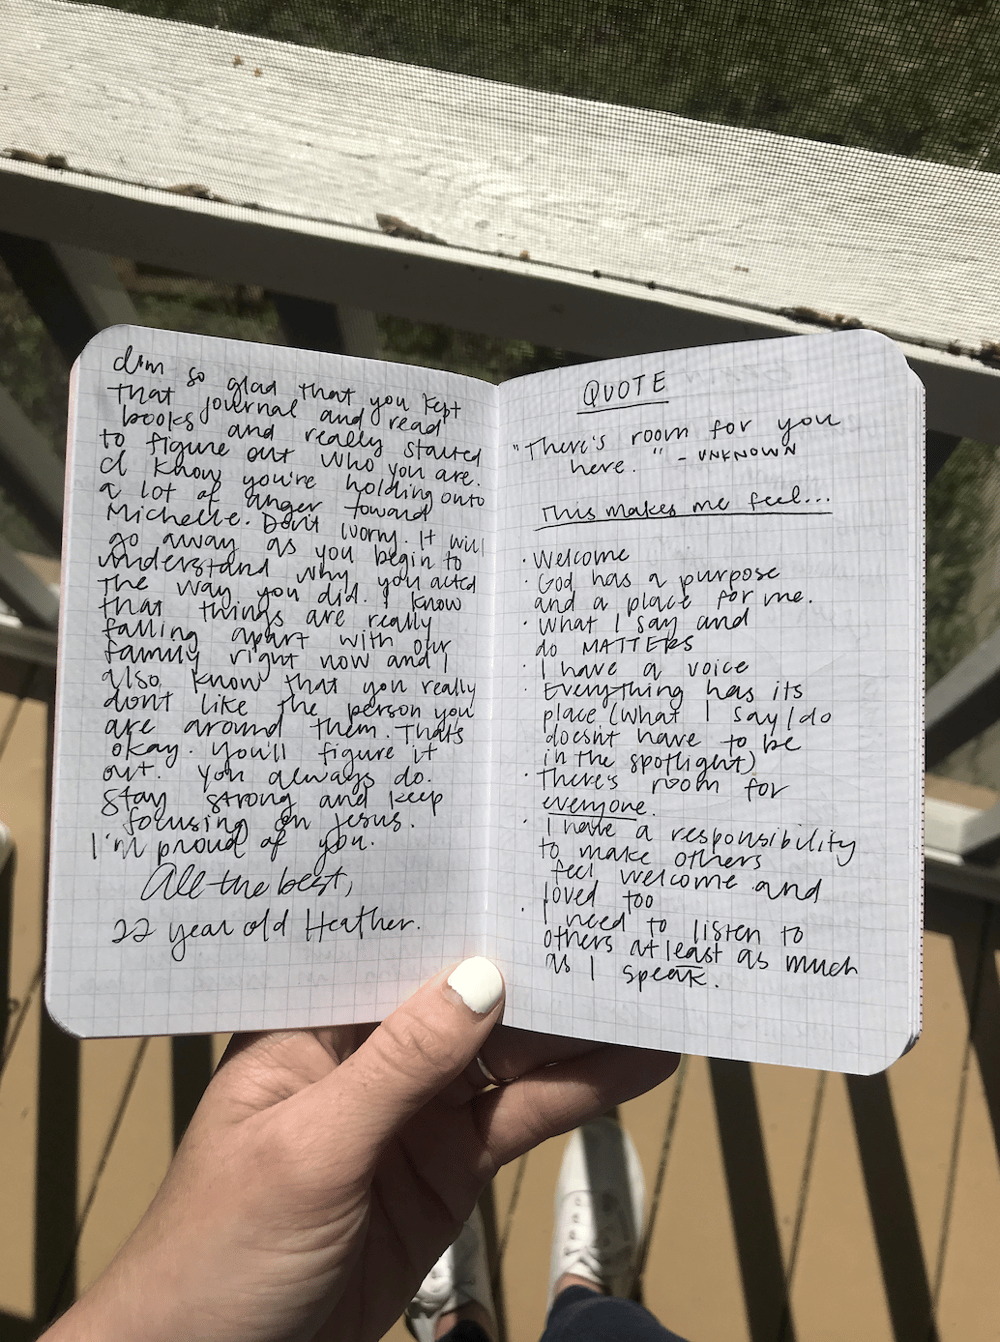 I'm so glad that you kept
that journal and read
books and really started
to figure out who you are.
I know you're holding onto
a lot of anger toward
Michelle. Don't worry. It will
go away as you begin to
understand why you acted
the way you did. I know
that things are really
falling apart with our
family right now and I
also know that you really
dont like the person you
are around them. That's
okay. You'll figure it
out. You always do.
Stay strong and keep
focusing on Jesus.
I'm proud of you.
All the best,
22 year old Heather.
QUOTE
"There's room for you
here." - UNKNOWN
This makes me feel...
· Welcome
· God has a purpose
and a place for me.
· What I say and
do MATTERS
· I have a voice
· Everything has its
place (what I say/do
doesn't have to be
in the spotlight)
· There's room for
everyone.
· I have a responsibility
to make others
feel welcome and
loved too
· I need to listen to
others at least as much
as I speak.